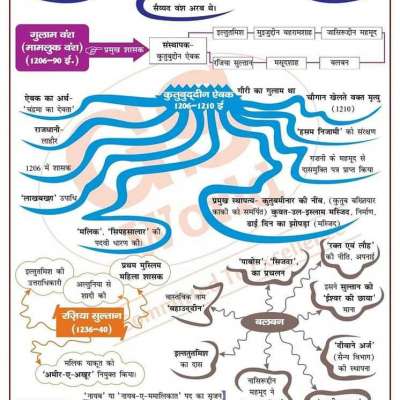 सैय्यद वंश अरब थे।
गुलाम वंश
(मामलुक वंश)
(1206-90 ई.)
प्रमुख शासक
संस्थापक-
कुतुबुद्दीन ऐबक
इल्तुतमिश
मुइजुद्दीन बहरामशाह
नासिरूद्दीन महमूद
रजिया सुल्तान
मसूदशाह
बलबन
कुतुबुद्दीन ऐबक
1206-1210 ई
ऐबक का अर्थ-
'चंद्रमा का देवता'
राजधानी-
लाहौर
1206 में शासक
'लाखबख्श' उपाधि
'मलिक', 'सिपहसालार' की
पदवी धारण की।
गौरी का गुलाम था
चौगान खेलते वक्त मृत्यु
(1210)
'हसम निजामी' को संरक्षण
गजनी के महमूद से
दासमुक्ति पत्र प्राप्त किया
प्रमुख स्थापत्य- कुतुबमीनार की नींव, (कुतुब बख्तियार
काकी को समर्पित) कुव्वत-उल-इस्लाम मस्जिद, निर्माण,
ढाई दिन का झोपड़ा (मस्जिद)
इल्तुतमिश की
उत्तराधिकारी
अल्तुनिया से
शादी की
प्रथम मुस्लिम
महिला शासक
रज़िया सुल्तान
(1236-40)
मलिक याकूत को
'अमीर-ए-अखूर' नियुक्त किया।
बलबन
वास्तविक नाम
'बहाउद्दीन'
'पाबोस', 'सिजदा',
का प्रचलन
'रक्त एवं लौह'
की नीति, अपनाई
इसने सुल्तान को
'ईश्वर की छाया'
माना
'दीवाने अर्ज'
(सैन्य विभाग)
की स्थापना
इल्तुतमिश
का दास
नासिरूद्दीन
महमूद ने
'नायब' या 'नायब-ए-ममालिकात' पद का सृजन